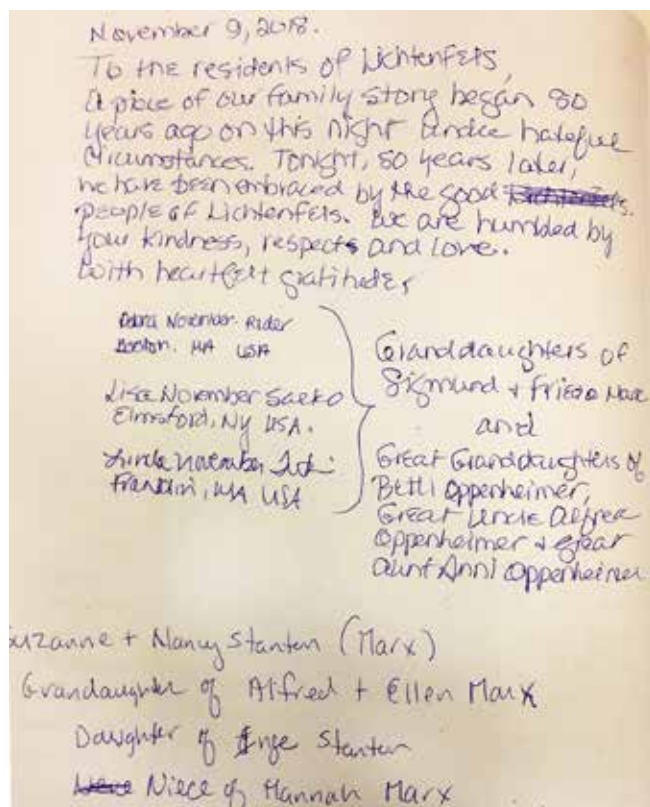 November 9, 2018.
To the residents of Lichtenfels,
A piece of our family story began 80
years ago on this night under hateful
circumstances. Tonight, 80 years later,
we have been embraced by the good
people of Lichtenfels. We are humbled by
your kindness, respect and love.
With heartfelt gratitude,
Debra November Rider
Boston, MA USA
Lisa November
Elmsford, NY USA.
Linda November
Franklin, MA USA
Granddaughters of
Sigmund + Marx
and
Great Granddaughters of
Betti Oppenheimer,
Great Uncle Alfred
Oppenheimer + great
Aunt Anni Oppenheimer
Suzanne + Nancy Stanton (Marx)
Grandaughter of Alfred + Ellen Marx
Daughter of Inge Stanton
Niece of Hannah Marx